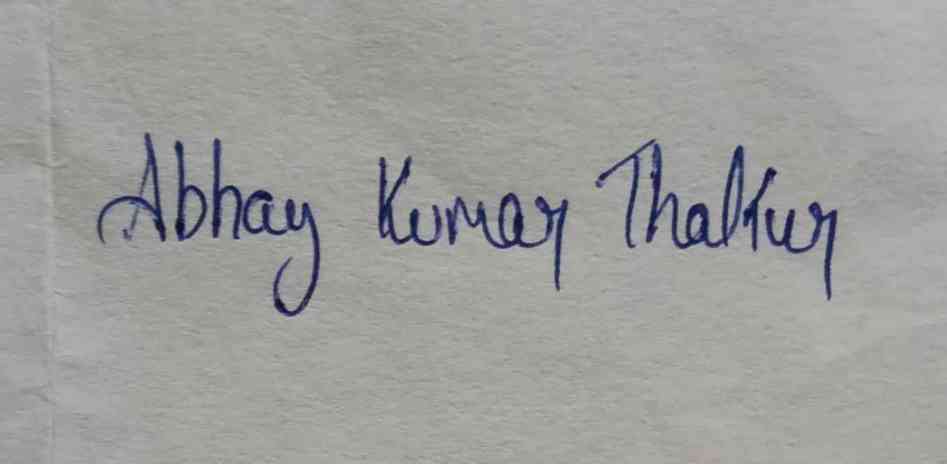 Abhay Kumar Thakur